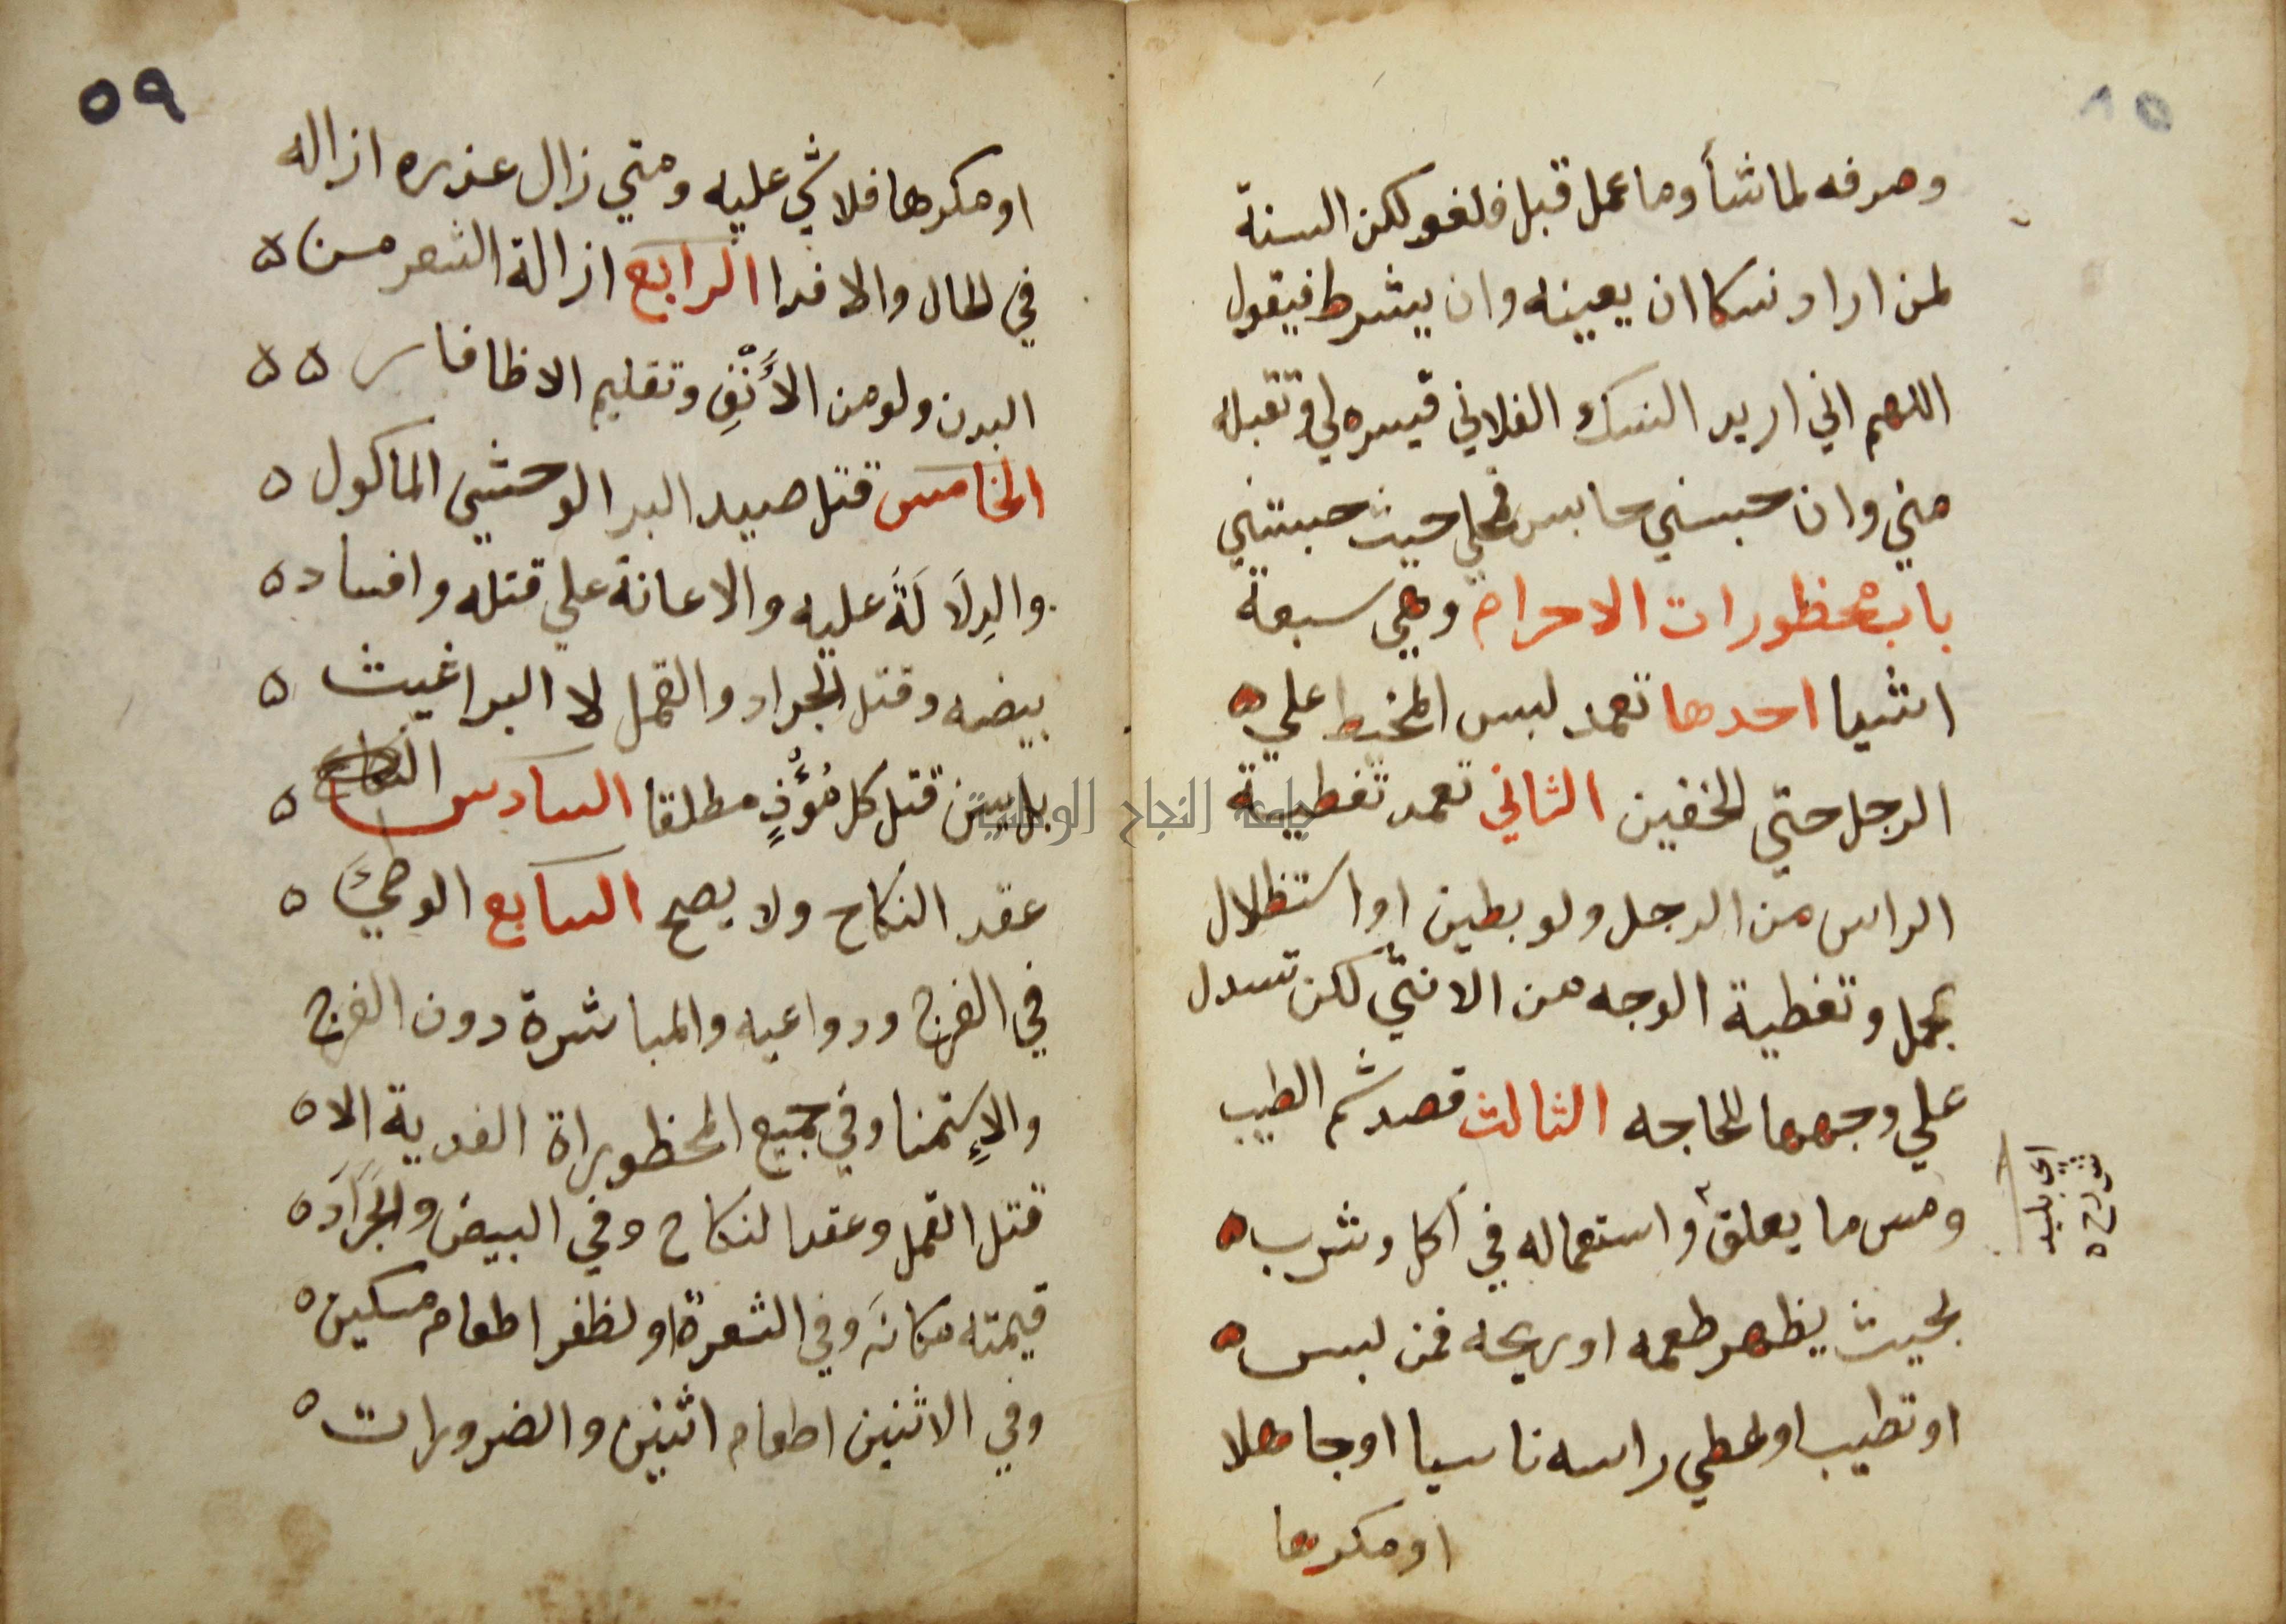 وصرفه لما شأ وما عمل قبل فلغو لكن السنة
لمن اراد نسكا ان يعينه وان يشرط فيقول
اللهم اني اريد النسك الفلاني فيسره لي وتقبله
مني وان حبسني حابس فمحلي حيث حبستني
باب محظورات الاحرام وهي سبعة
اشيا احدها تعمد لبس المخيط علي ه
الرجل حتي الخفين الثاني تعمد تغطية
الراس من الرجل ولو بطين او استظلال
بمحمل وتغطية الوجه من الانثي لكن تسدل
علي وجهها للحاجه الثالث قصد شم الطيب
ومس ما يعلق واستعماله في اكل وشرب ه
بحيث يظهر طعمه او ريحه فمن لبس ه
او تطيب او غطي راسه ناسيا او جاهلا
او مكرها
اي بليد
٥٩
او مكرها فلا شي عليه ومتي زال عذره ازاله
في الحال والا فدا الرابع ازالة الشعر من ه
البدن ولو من الأَنْفِ وتقليم الاظافار ه ه
الخامس قتل صيد البر الوحشي الماكول ه
والدِلَالَةَ عليه والاعانة علي قتله وافساد ه
بيضه وقتل الجراد والقمل لا البراغيث ه
بل يسن قتل كل مُؤْذٍ مطلقا السادس ه
عقد النكاح ولا يصح السابع الوطيَء ه
في الفرج ودواعيه والمباشرة دون الفرج
والاِستمنا وفي جميع المحظوراة الفدية الا ه
قتل القمل وعقد النكاح وفي البيض والجَرَادَ ه
قيمته مكانَه وفي الشعرة او لظفر اطعام مسكين ه
وفي الاثنين اطعام اثنين والضرورات ه
جامعة النجاح الوطنية